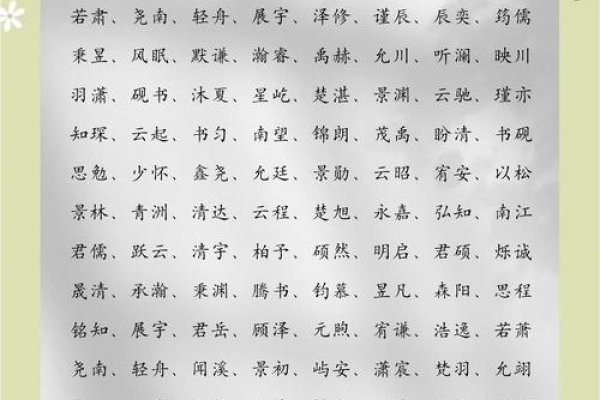 若肃、尧南、轻舟、展宇、泽修、谨辰、辰奕、筠儒
秉昱、风眠、默谦、瀚睿、禹赫、允川、听澜、映川
羽潇、砚书、沐夏、星屹、楚湛、景渊、云驰、瑾亦
知琛、云起、书匀、南望、锦朗、茂禹、盼清、书砚
思勉、少怀、鑫尧、允廷、景勋、云昭、宥安、以松
景林、青洲、清达、云程、楚旭、永嘉、弘知、南江
君儒、跃云、清宇、柏予、硕然、明启、君硕、烁诚
晟清、承瀚、秉渊、腾书、钧慕、昱凡、森阳、思程
铭知、展宇、君岳、顾泽、元煦、宥谦、浩逸、若萧
尧南、轻舟、闻溪、景初、屿安、潇宸、梵羽、允翊